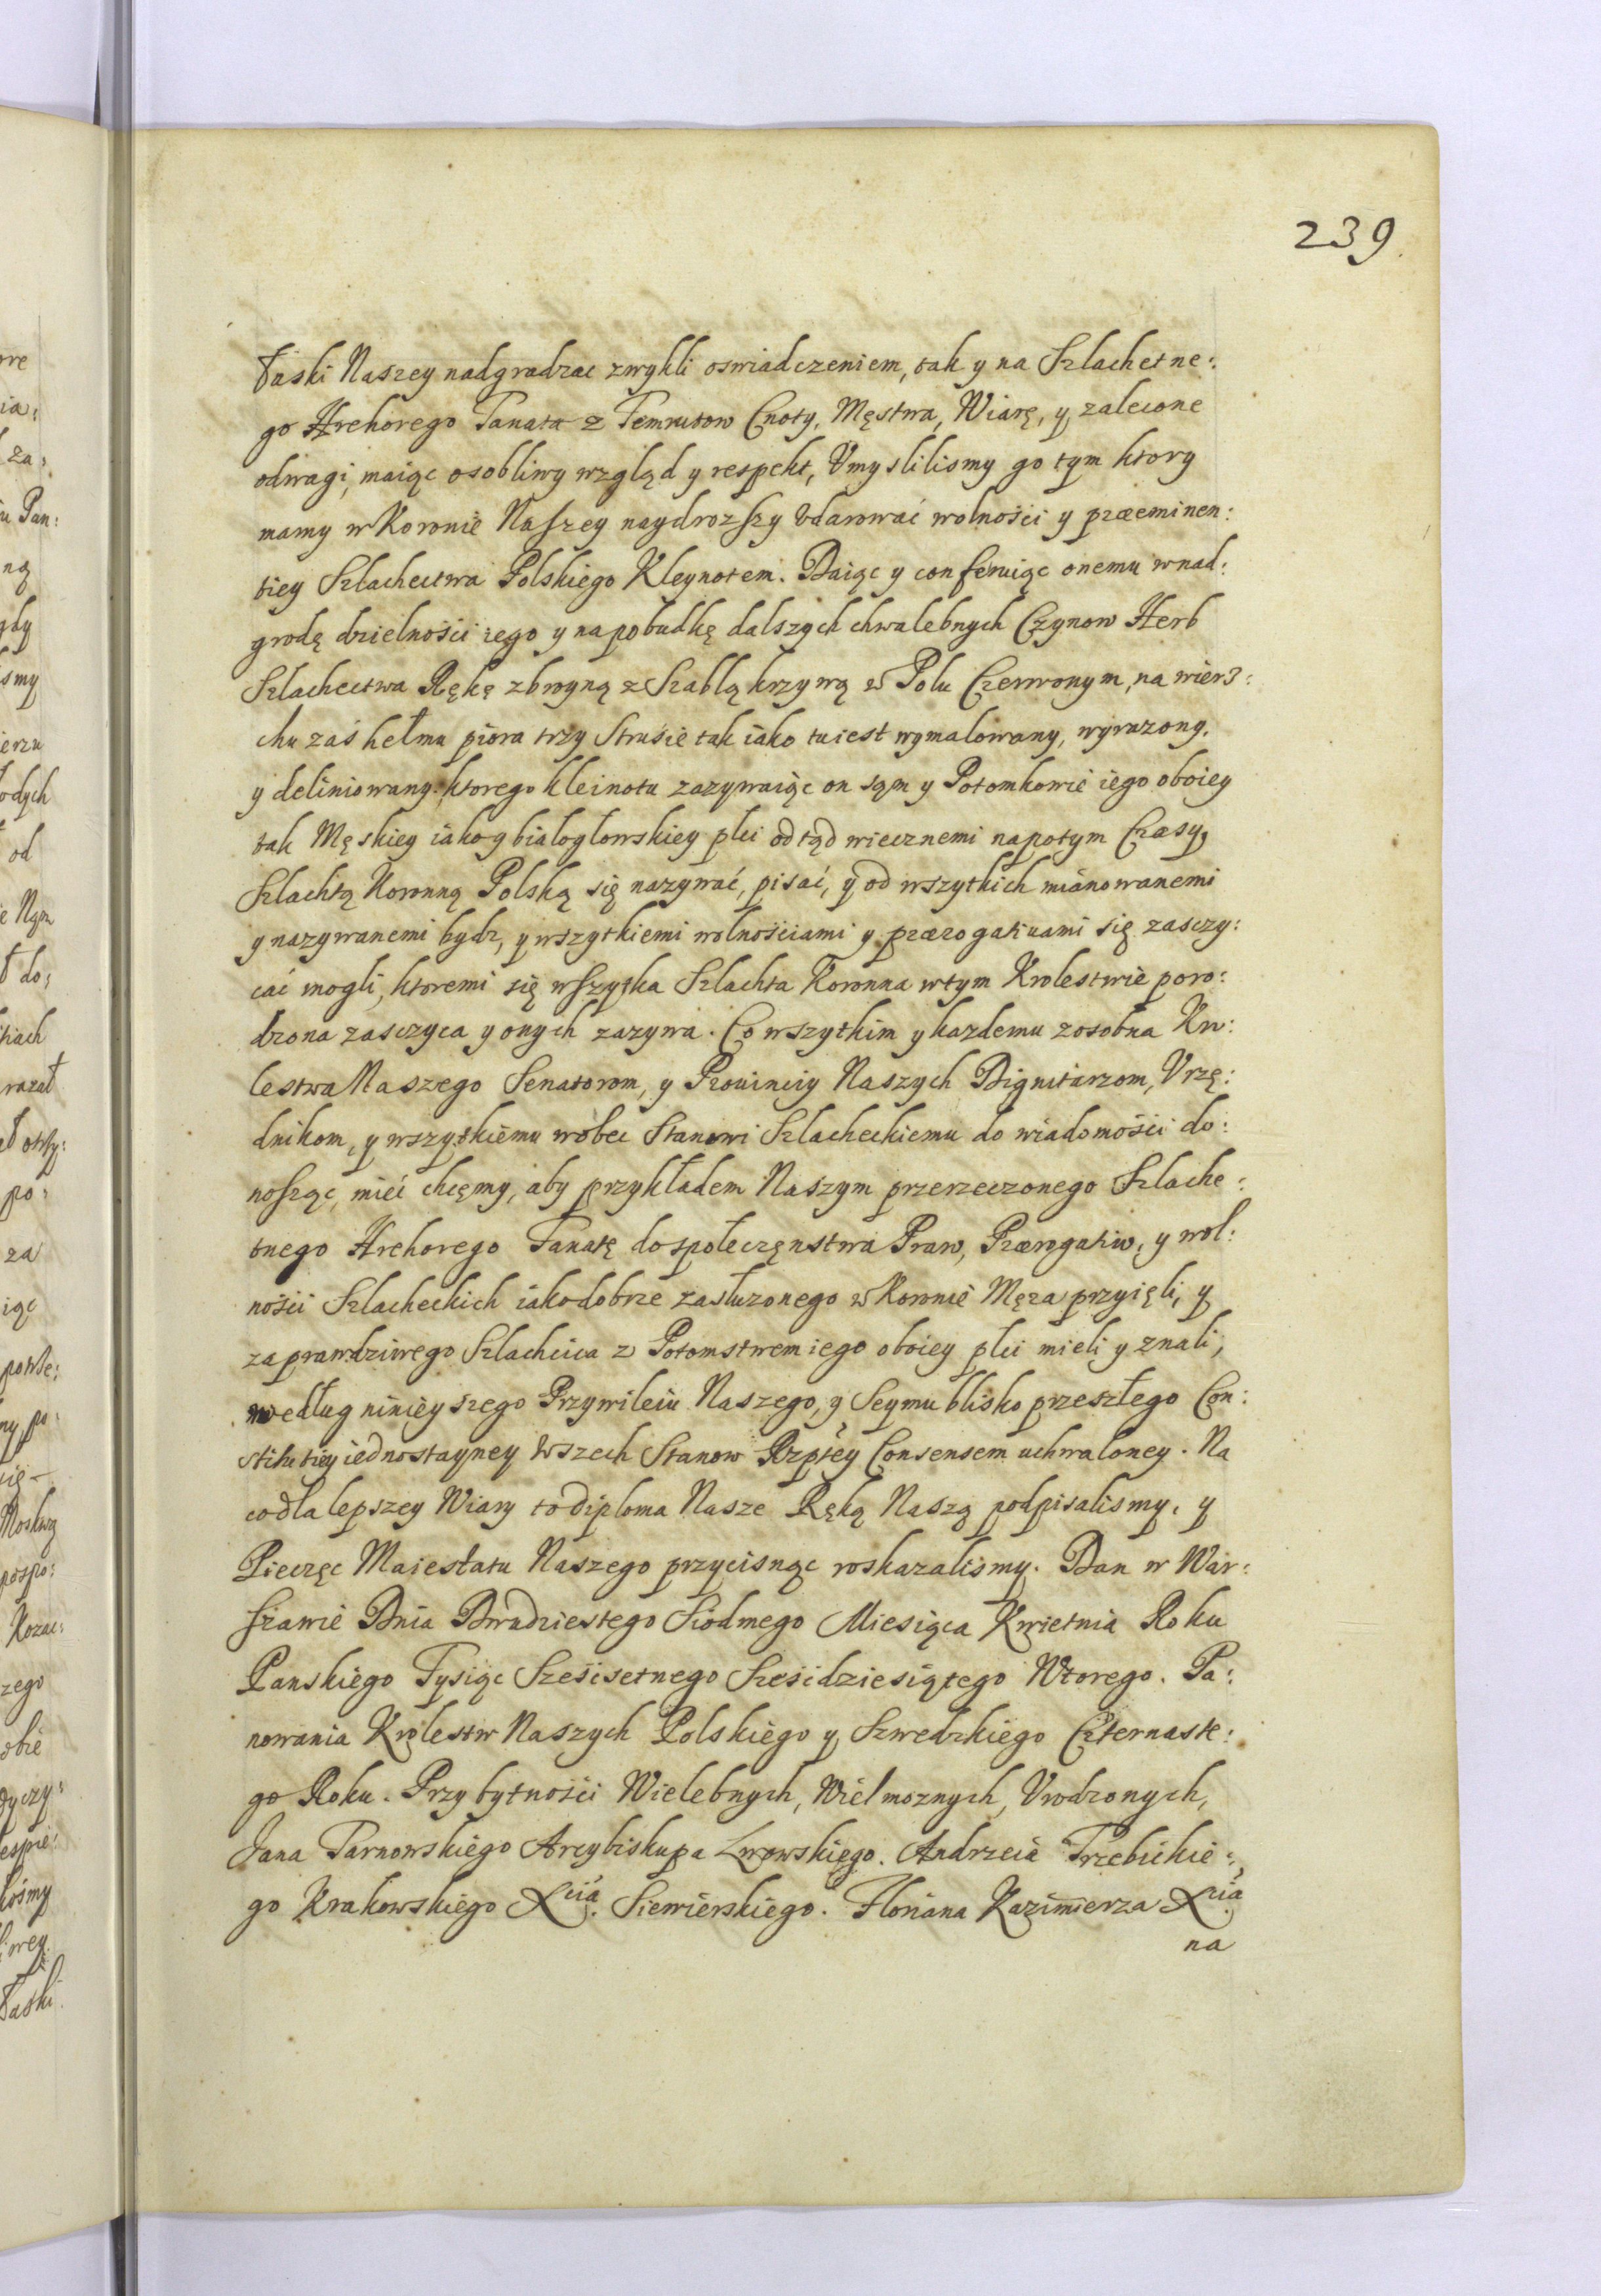 239
Łaski Naszey nadgradzac zwykli oswiadczeniem, tak y na Szlachetne:
go Hrehorego Tanata z Temrutow Cnoty, Męstwa, Wiarę, y zalecone
odwagi, maiąc osobliwy wzgląd y respekt, Vmyslilismy go tym ktory
mamy w Koronie Naszey naydrozszy vdarować wolności y præeminen:
tiey Szlachectwa Polskiego Kleynotem. Daiąc y conferuiąc onemu w nad:
grodę dzielności iego y na pobudkę dalszych chwalebnych Czynow Herb
Szlachectwa Rękę zbroyną z Szablą krzywą w Polu Czerwonym, na wierz:
chu zaś hełmu piora trzy Strusie tak iako tu iest wymalowany, wyrazony,
y deliniowany. ktorego kleinotu zazywaiąc on sąm y Potomkowie iego oboiey
tak Męskiey iako y bialoglowskiey płci odtąd wiecznemi napotym Czasy,
Szlachtą Koronną Polską się nazywać, pisać, y od wszytkich mianowanemi
y nazywanemi bydz, y wszytkiemi wolnościami y prærogatiuami się zasczy:
cać mogli, ktoremi się wszytka Szlachta Koronna w tym Krolestwie poro:
dzona zasczyca y onych zazywa. Co wszytkim y kazdemu zosobna Kro:
lestwa Naszego Senatorom, y Prouinciy Naszych Dignitarzom, Vrzę:
dnikom, y wszytkiemu wobec Stanowi Szlacheckiemu do wiadomości do:
nosząc, mieć chcęmy, aby przykładem Naszym przerzeczonego Szlache:
tnego Hrehorego Tanatę do społeczęnstwa Praw, Prærogatiw, y wol:
ności Szlacheckich iako dobrze zasłuzonego w Koronie Męza przyięli, y
za prawdziwego Szlachcica z Potomstwem iego oboiey płci mieli y znali,
według ninieyszego Przywileiu Naszego, y Seymu blisko przeszłego Con:
stitutiey iednostayney wszech Stanow Rzptey Consensem uchwaloney. Na
co dla lepszey Wiary to diploma Nasze Ręką Naszą podpisalismy, y
Pieczęc Maiestatu Naszego przycisnąc roskazalismy. Dan w War:
szawie Dnia Dwudziestego Siodmego Miesiąca Kwietnia Roku
Panskiego Tysiąc Sześćsetnego Sześcidziesiątego Wtorego. Pa:
nowania Krolestw Naszych Polskiego y Szwedzkiego Czternaste:
go Roku. Przy bytności Wielebnych, Wielmoznych, Vrodzonych,
Jana Tarnowskiego Arcybiskupa Lwowskiego. Andrzeia Trzebickie:
go Krakowskiego Xcia. Siewierskiego. Floriana Kazimierza Xcia
na